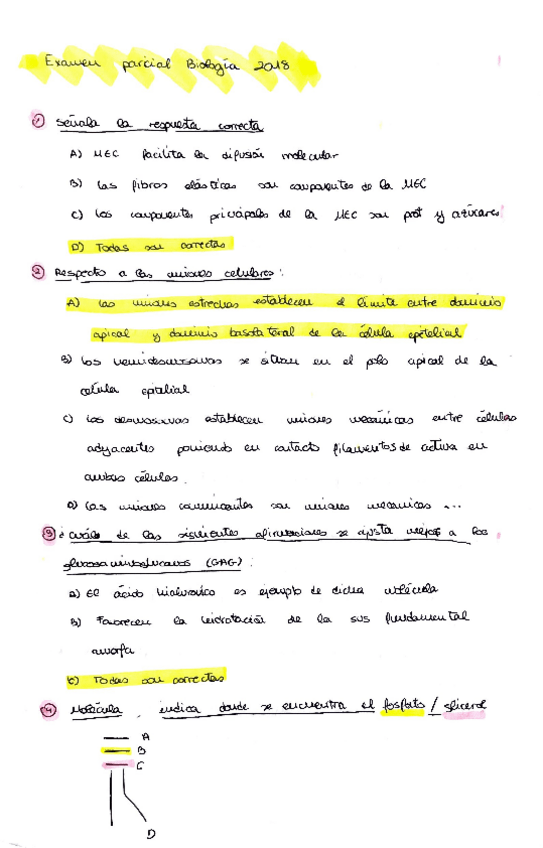 Examen parcial Biología 2018
1 Señala la respuesta correcta
A) MEC facilita la difusión molecular
B) Las fibras elásticas son componentes de la MEC
C) Los componentes principales de la MEC son prot y azúcares
D) Todas son correctas
2 Respecto a las uniones celulares:
A) Las uniones estrechas establecen el límite entre dominio
apical y dominio basolateral de la célula epitelial
B) Los hemidesmosomas se sitúan en el polo apical de la
célula epitelial
C) Los desmosomas establecen uniones mecánicas entre células
adyacentes poniendo en contacto filamentos de actina en
ambas células.
D) Las uniones comunicantes son uniones mecánicas ...
3 ¿cuál de las siguientes afirmaciones se ajusta mejor a los
glucosaminoglucanos (GAG):
a) El ácido hialurónico es ejemplo de dicha molécula
B) Favorecen la hidratación de la sus fundamental
amorfa.
C) Todas son correctas
4 Molécula, indica donde se encuentra el fosfato / glicerol
A
B
C
D